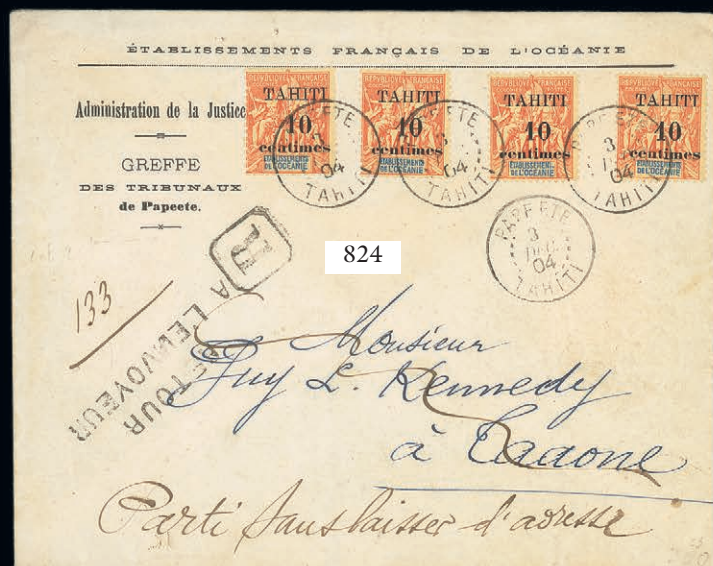 ÉTABLISSEMENTS FRANÇAIS DE L'OCÉANIE
Administration de la Justice
GREFFE
DES TRIBUNAUX
de Papeete.
RÉPUBLIQUE FRANÇAISE
TAHITI
10
centimes
ÉTABLISSEMENTS
DE L'OCÉANIE
RÉPUBLIQUE FRANÇAISE
TAHITI
10
centimes
ÉTABLISSEMENTS
DE L'OCÉANIE
RÉPUBLIQUE FRANÇAISE
TAHITI
10
centimes
ÉTABLISSEMENTS
DE L'OCÉANIE
TAHITI
10
centimes
ÉTABLISSEMENTS
DE L'OCÉANIE
PAPEETE
04
TAHITI
PAPEETE
3
04
TAHITI
PAPEETE
3
04
TAHITI
PAPEETE
3
DEC
04
TAHITI
R
824
133
RETOUR
A L'ENVOYEUR
Monsieur
Guy L. Kennedy
à
Parti sans laisser d'adresse